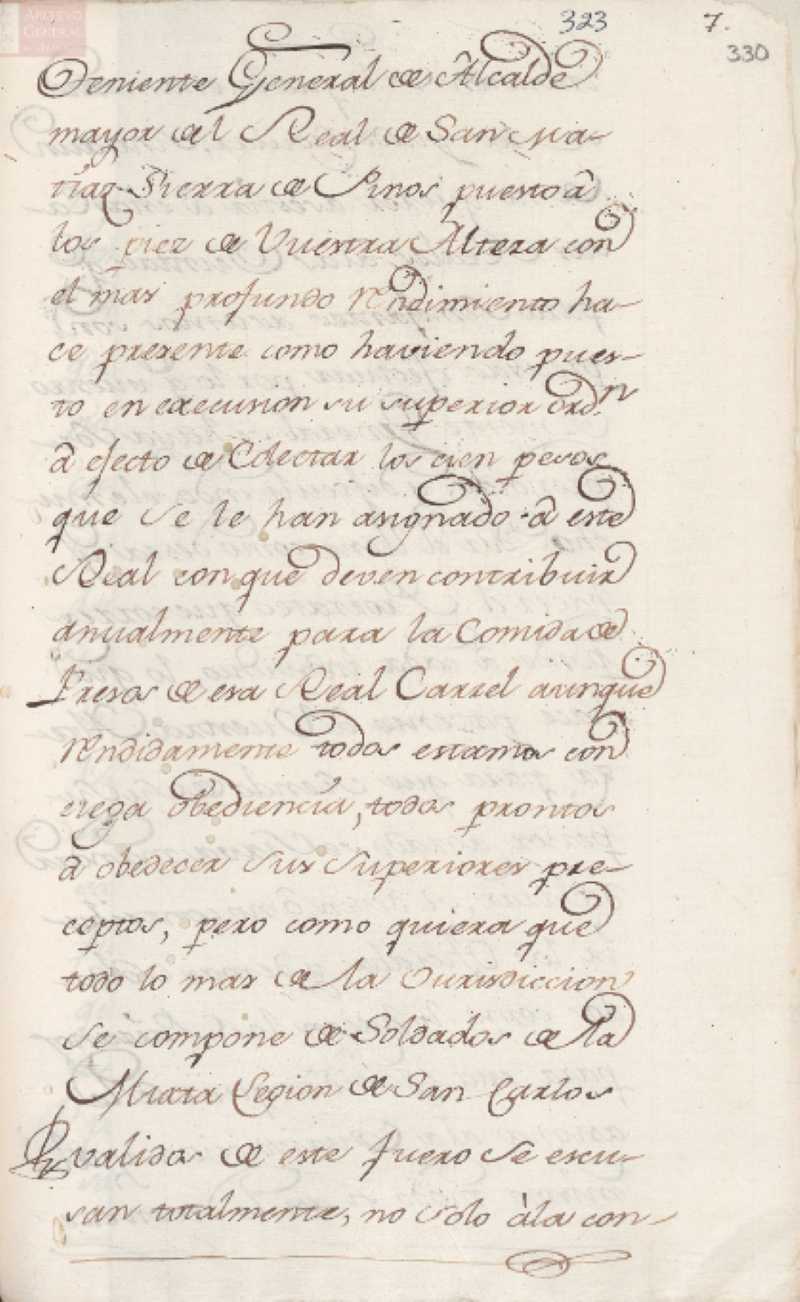 ARCHIVO
GENERAL
323
7.
330
Teniente General de Alcalde
mayor del Real de San Ma-
tías Sierra de Pinos puesto â
los pies de Vuestra Alteza con
el mas profundo rendimiento ha-
ce presente como haviendo pues-
to en execusion su superior ordn
â efecto de Colectar los cien pesos
que se le han asignado â este
Real con que deven contribuir
anualmente para la Comida de
Presos de esa Real Carzel aunque
rendidamente todos estamos con
ciega obediencia, todos prontos
â obedecer sus superiores pre-
ceptos, pero como quiera que
todo lo mas de la Jurisdiccion
se compone de Soldados de la
Mixta Legion de San Carlos
validos de este fuero se escu-
san totalmente, no solo àla con-